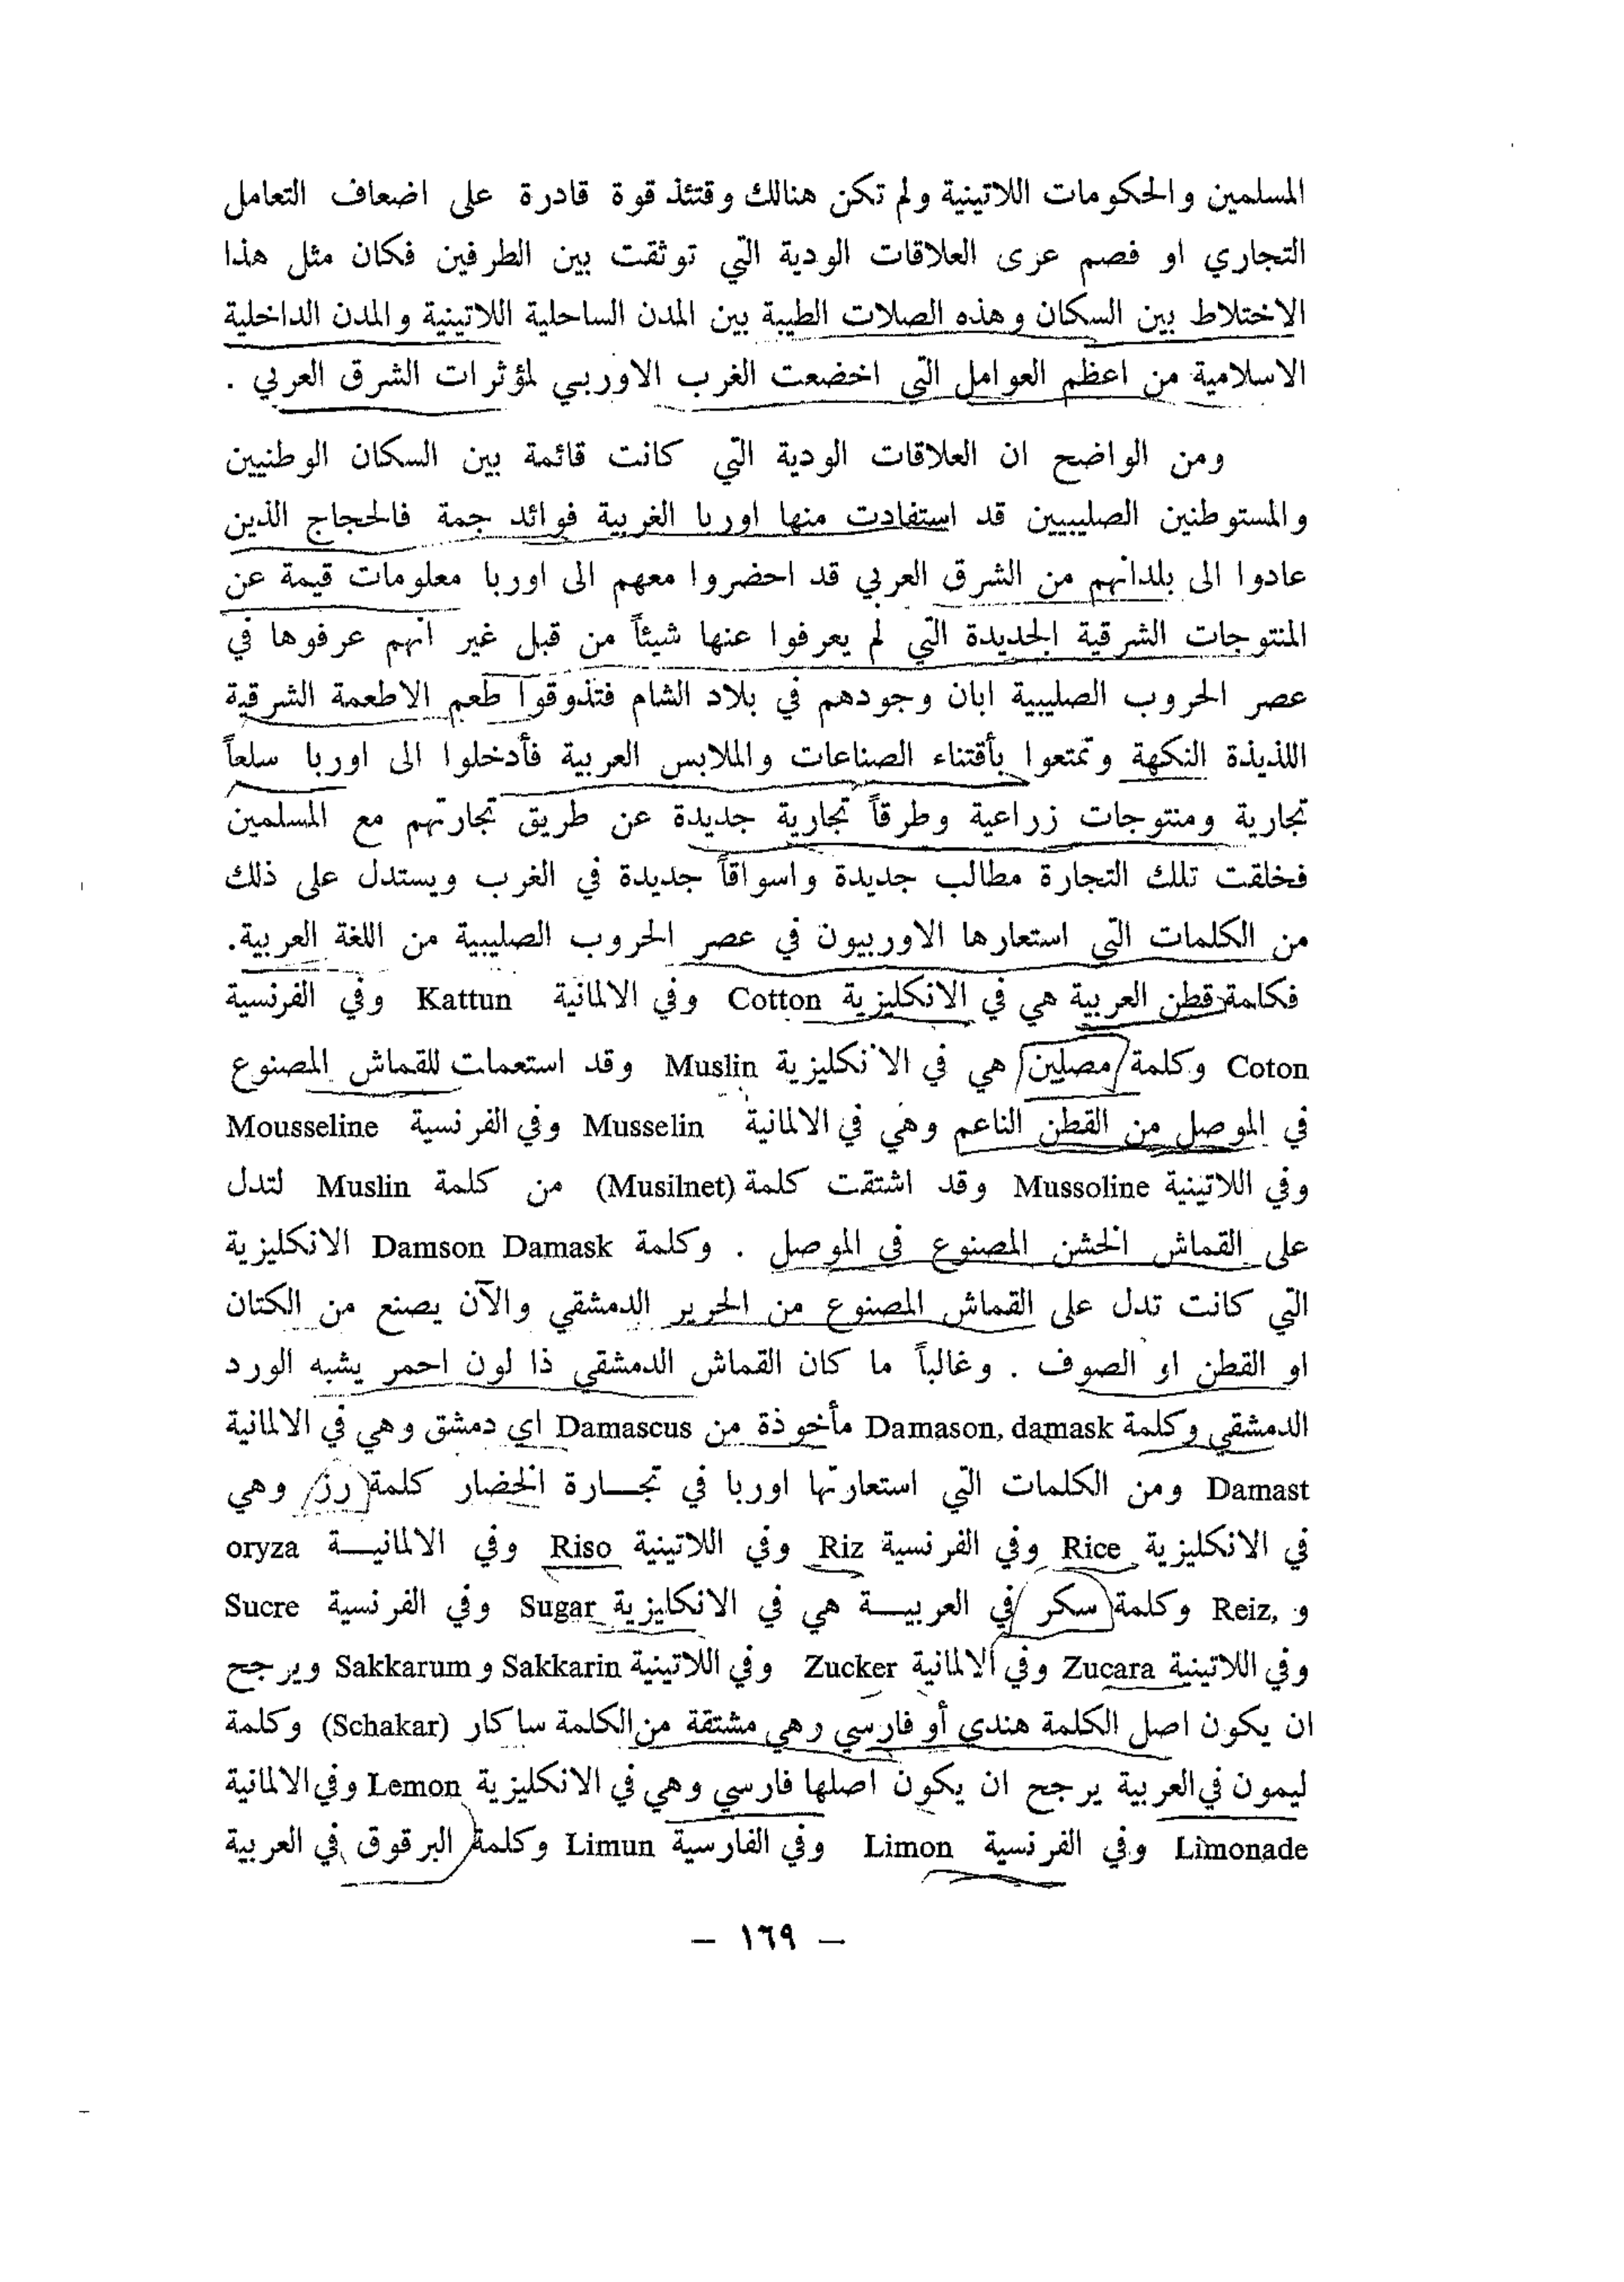 المسلمين والحكومات اللاتينية ولم تكن هنالك وقتئذ قوة قادرة على اضعاف التعامل
التجاري او فصم عرى العلاقات الودية التي توثقت بين الطرفين فكان مثل هذا
الاختلاط بين السكان وهذه الصلات الطيبة بين المدن الساحلية اللاتينية والمدن الداخلية
الاسلامية من اعظم العوامل التي اخضعت الغرب الاوربي لمؤثرات الشرق العربي .
ومن الواضح ان العلاقات الودية التي كانت قائمة بين السكان الوطنيين
والمستوطنين الصليبيين قد استفادت منها اوربا الغربية فوائد جمة فالحجاج الذين
عادوا الى بلدانهم من الشرق العربي قد احضروا معهم الى اوربا معلومات قيمة عن
المنتوجات الشرقية الجديدة التي لم يعرفوا عنها شيئاً من قبل غير انهم عرفوها في
عصر الحروب الصليبية ابان وجودهم في بلاد الشام فتذوقوا طعم الاطعمة الشرقية
اللذيذة النكهة وتمتعوا بأقتناء الصناعات والملابس العربية فأدخلوا الى اوربا سلعاً
تجارية ومنتوجات زراعية وطرقاً تجارية جديدة عن طريق تجارتهم مع المسلمين
فخلقت تلك التجارة مطالب جديدة واسواقاً جديدة في الغرب ويستدل على ذلك
من الكلمات التي استعارها الاوربيون في عصر الحروب الصليبية من اللغة العربية.
فكلمة قطن العربية هي في الانكليزية Cotton وفي الالمانية Kattun وفي الفرنسية
Coton وكلمة مصلين هي في الانكليزية Muslin وقد استعملت للقماش المصنوع
في الموصل من القطن الناعم وهي في الالمانية Musselin وفي الفرنسية Mousseline
وفي اللاتينية Mussoline وقد اشتقت كلمة (Musilnet) من كلمة Muslin لتدل
على القماش الخشن المصنوع في الموصل . وكلمة Damson Damask الانكليزية
التي كانت تدل على القماش المصنوع من الحرير الدمشقي والآن يصنع من الكتان
او القطن او الصوف . وغالباً ما كان القماش الدمشقي ذا لون احمر يشبه الورد
الدمشقي وكلمة Damason, damask مأخوذة من Damascus اي دمشق وهي في الالمانية
Damast ومن الكلمات التي استعارتها اوربا في تجـارة الخضار كلمة رز وهي
في الانكليزية Rice وفي الفرنسية Riz وفي اللاتينية Riso وفي الالمانيـة oryza
و Reiz, وكلمة سكر في العربيـة هي في الانكليزية Sugar وفي الفرنسية Sucre
وفي اللاتينية Zucara وفي الالمانية Zucker وفي اللاتينية Sakkarin و Sakkarum ويرجح
ان يكون اصل الكلمة هندي أو فارسي وهي مشتقة من الكلمة ساكار (Schakar) وكلمة
ليمون في العربية يرجح ان يكون اصلها فارسي وهي في الانكليزية Lemon وفي الالمانية
Limonade وفي الفرنسية Limon وفي الفارسية Limun وكلمة البرقوق في العربية
– ١٦٩ –